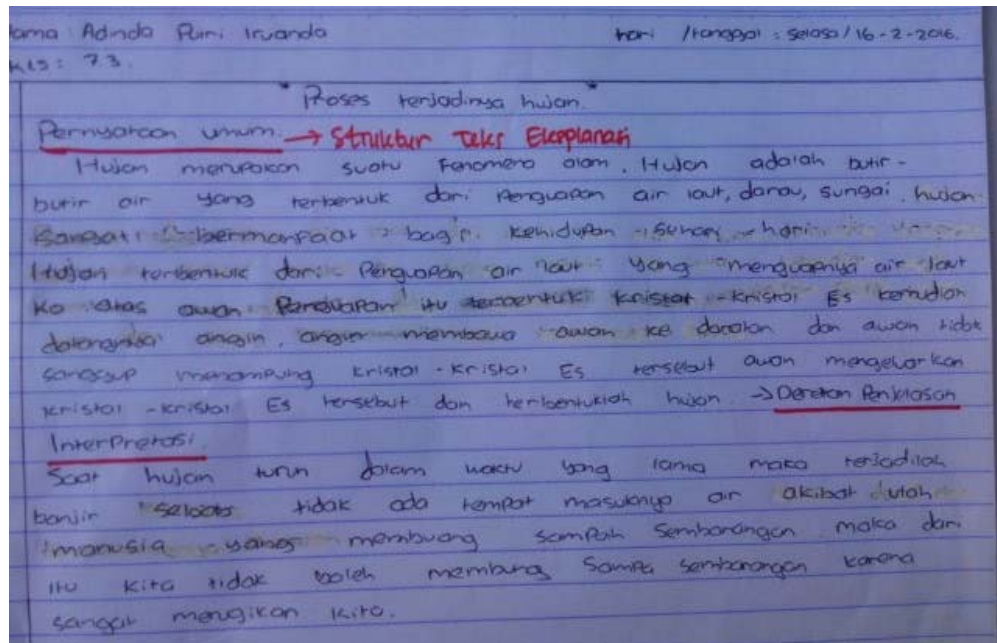 ama Adinda Putri Irvanda hari /tanggal : selasa / 16 - 2 - 2016.
Kls : 7.3.
" Proses terjadinya hujan. "
Pernyataan umum. → Struktur Teks Eksplanasi
Hujan merupakan suatu Fenomena alam. Hujan adalah butir -
butir air yang terbentuk dari Penguapan air laut, danau, sungai. hujan
Sangat bermanfaat bagi kehidupan sehari - hari
Hujan terbentuk dari Penguapan air laut yang menguapnya air laut
Ke atas awan itu terbentuk kristal - kristal Es kemudian
datangnya angin, angin membawa awan ke daratan dan awan tidak
sanggup menampung kristal - kristal Es tersebut awan mengeluarkan
kristal - kristal Es tersebut dan terbentuklah hujan → Deretan Penjelasan
Interpretasi.
Saat hujan turun dalam waktu yang lama maka terjadilah
banjir tidak ada tempat masuknya air akibat ulah
manusia yang membuang sampah Sembarangan maka dari
itu kita tidak boleh membung Sampa sembarangan karena
sangat merugikan kita.